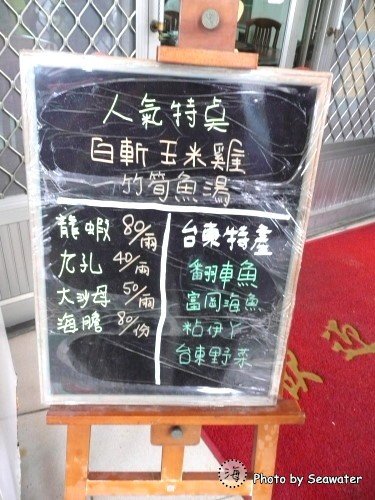 人氣特桌
白斬玉米雞
竹筍魚湯
龍蝦 80/兩
九孔 40/兩
大沙母 50/兩
海膽 80/份
台東特產
翻車魚
富岡海魚
粘伊ㄚ
台東野菜
海 Photo by Seawater